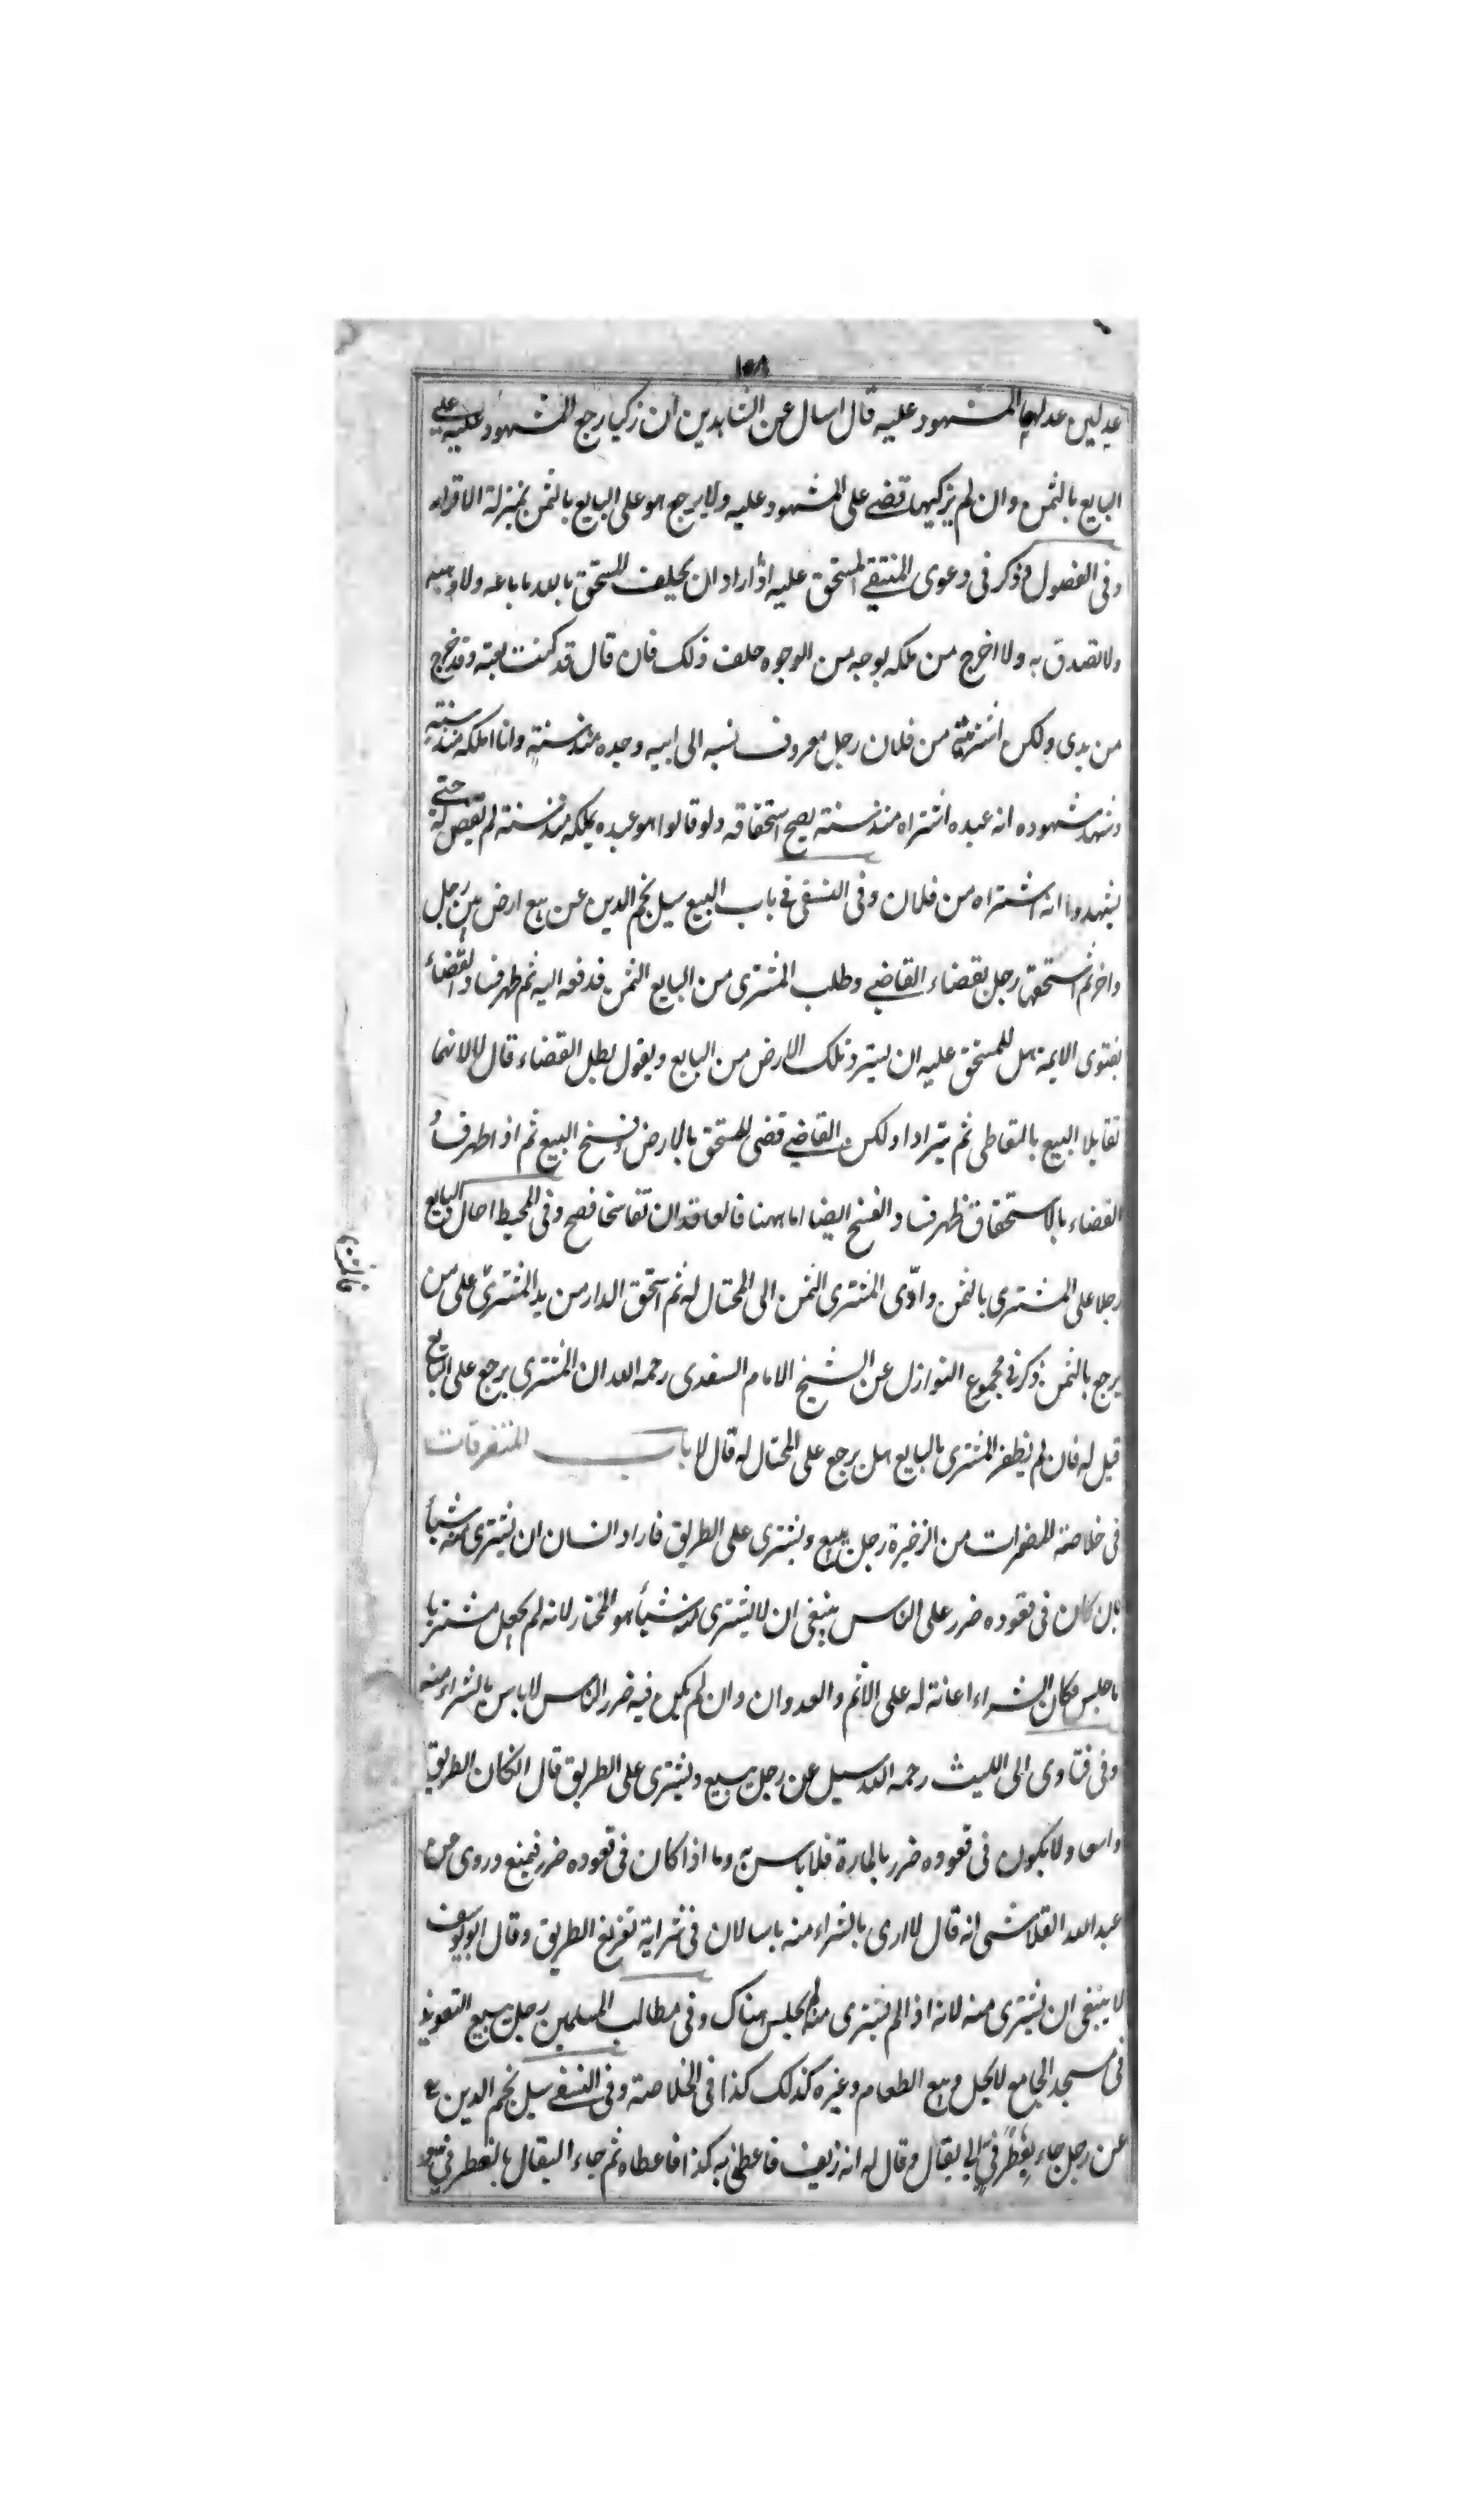 ١٥٨
عدلين عدلهما المشهود عليه قال اسال عن الشاهدين ان زكيا رجع المشهود عليه على
البايع بالثمن وان لم يزكيهما قضى على المشهود عليه ولا يرجع هو على البايع بالثمن بمنزلة الاقرار
وفى الفصول ذكر فى دعوى المنتقى المستحق عليه اذا اراد ان يحلف المستحق بالله ما باعه ولا وهبه
ولا تصدق به ولا اخرج من ملكه بوجه من الوجوه حلف ذلك فان قال قد كنت بعته وقد خرج
من يدى ولكن اشتريته من فلان رجل معروف نسبه الى ابيه وجده منذ سنة وانا املكه منذ سنة
وشهد شهوده انه عبده اشتراه منذ سنة يصح استحقاقه ولو قالوا هو عبده يملكه منذ سنة لم يقض له حتى
يشهدوا انه اشتراه من فلان وفى النسفى فى باب البيع سيل نجم الدين عن بيع ارض من رجل
واخر ثم استحقها رجل بقضاء القاضى وطلب المشترى من البايع الثمن فدفعه اليه ثم ظهر فساد القضاء
بفتوى الايمة هل للمستحق عليه ان يسترد تلك الارض من البايع ويقول بطل القضاء قال لا لانهما
تقابلا البيع بالتعاطى ثم يترادا ولكن القاضى قضى للمستحق بالارض وفسخ البيع ثم اذا ظهر فساد
القضاء بالاستحقاق ظهر فساد الفسخ ايضا اما ههنا فالعاقدان تفاسخا فصح وفى المحيط احال البايع
رجلا على المشترى بالثمن وادّى المشترى الثمن الى المحتال له ثم استحق الدار من يد المشترى على من
يرجع بالثمن ذكر فى مجموع النوازل عن الشيخ الامام السغدى رحمه الله ان المشترى يرجع على البايع
قيل له فان لم يظفر المشترى بالبايع هل يرجع على المحتال له قال لا باب المتفرقات
فى خلاصة المضمرات من الذخيرة رجل يبيع ويشترى على الطريق فاراد انسان ان يشترى منه شيأ
بان كان فى قعوده ضرر على الناس ينبغى ان لا يشترى منه شيأ هو المختار لانه لم يجعل مشتريا
ما جلس فكان الشراء اعانة له على الاثم والعدوان وان لم يكن فيه ضرر الناس لا باس بالشراء منه
وفى فتاوى ابى الليث رحمه الله سيل عن رجل يبيع ويشترى على الطريق قال ان كان الطريق
واسعا ولا يكون فى قعوده ضرر بالمارة فلا باس به وما اذا كان فى قعوده ضرر فيمنع وروى عن
عبد الله القلانسى انه قال لا ارى بالشراء منه باسا لان فى شرايه تفريغ الطريق وقال ابو يوسف
لا ينبغى ان يشترى منه لانه اذا لم يشترى منه لم يجلس هناك وفى مطالب المسلمين رجل يبيع التعويذ
فى مسجد الجامع لا يحل وبيع الطعام وغيره كذلك كذا فى الخلاصة وفى النسفى سيل نجم الدين
عن رجل جاء بغطرفىّ الى بقال وقال له انه زيف فاعطنى به كذا فاعطاه ثم جاء البقال بالغطرفى